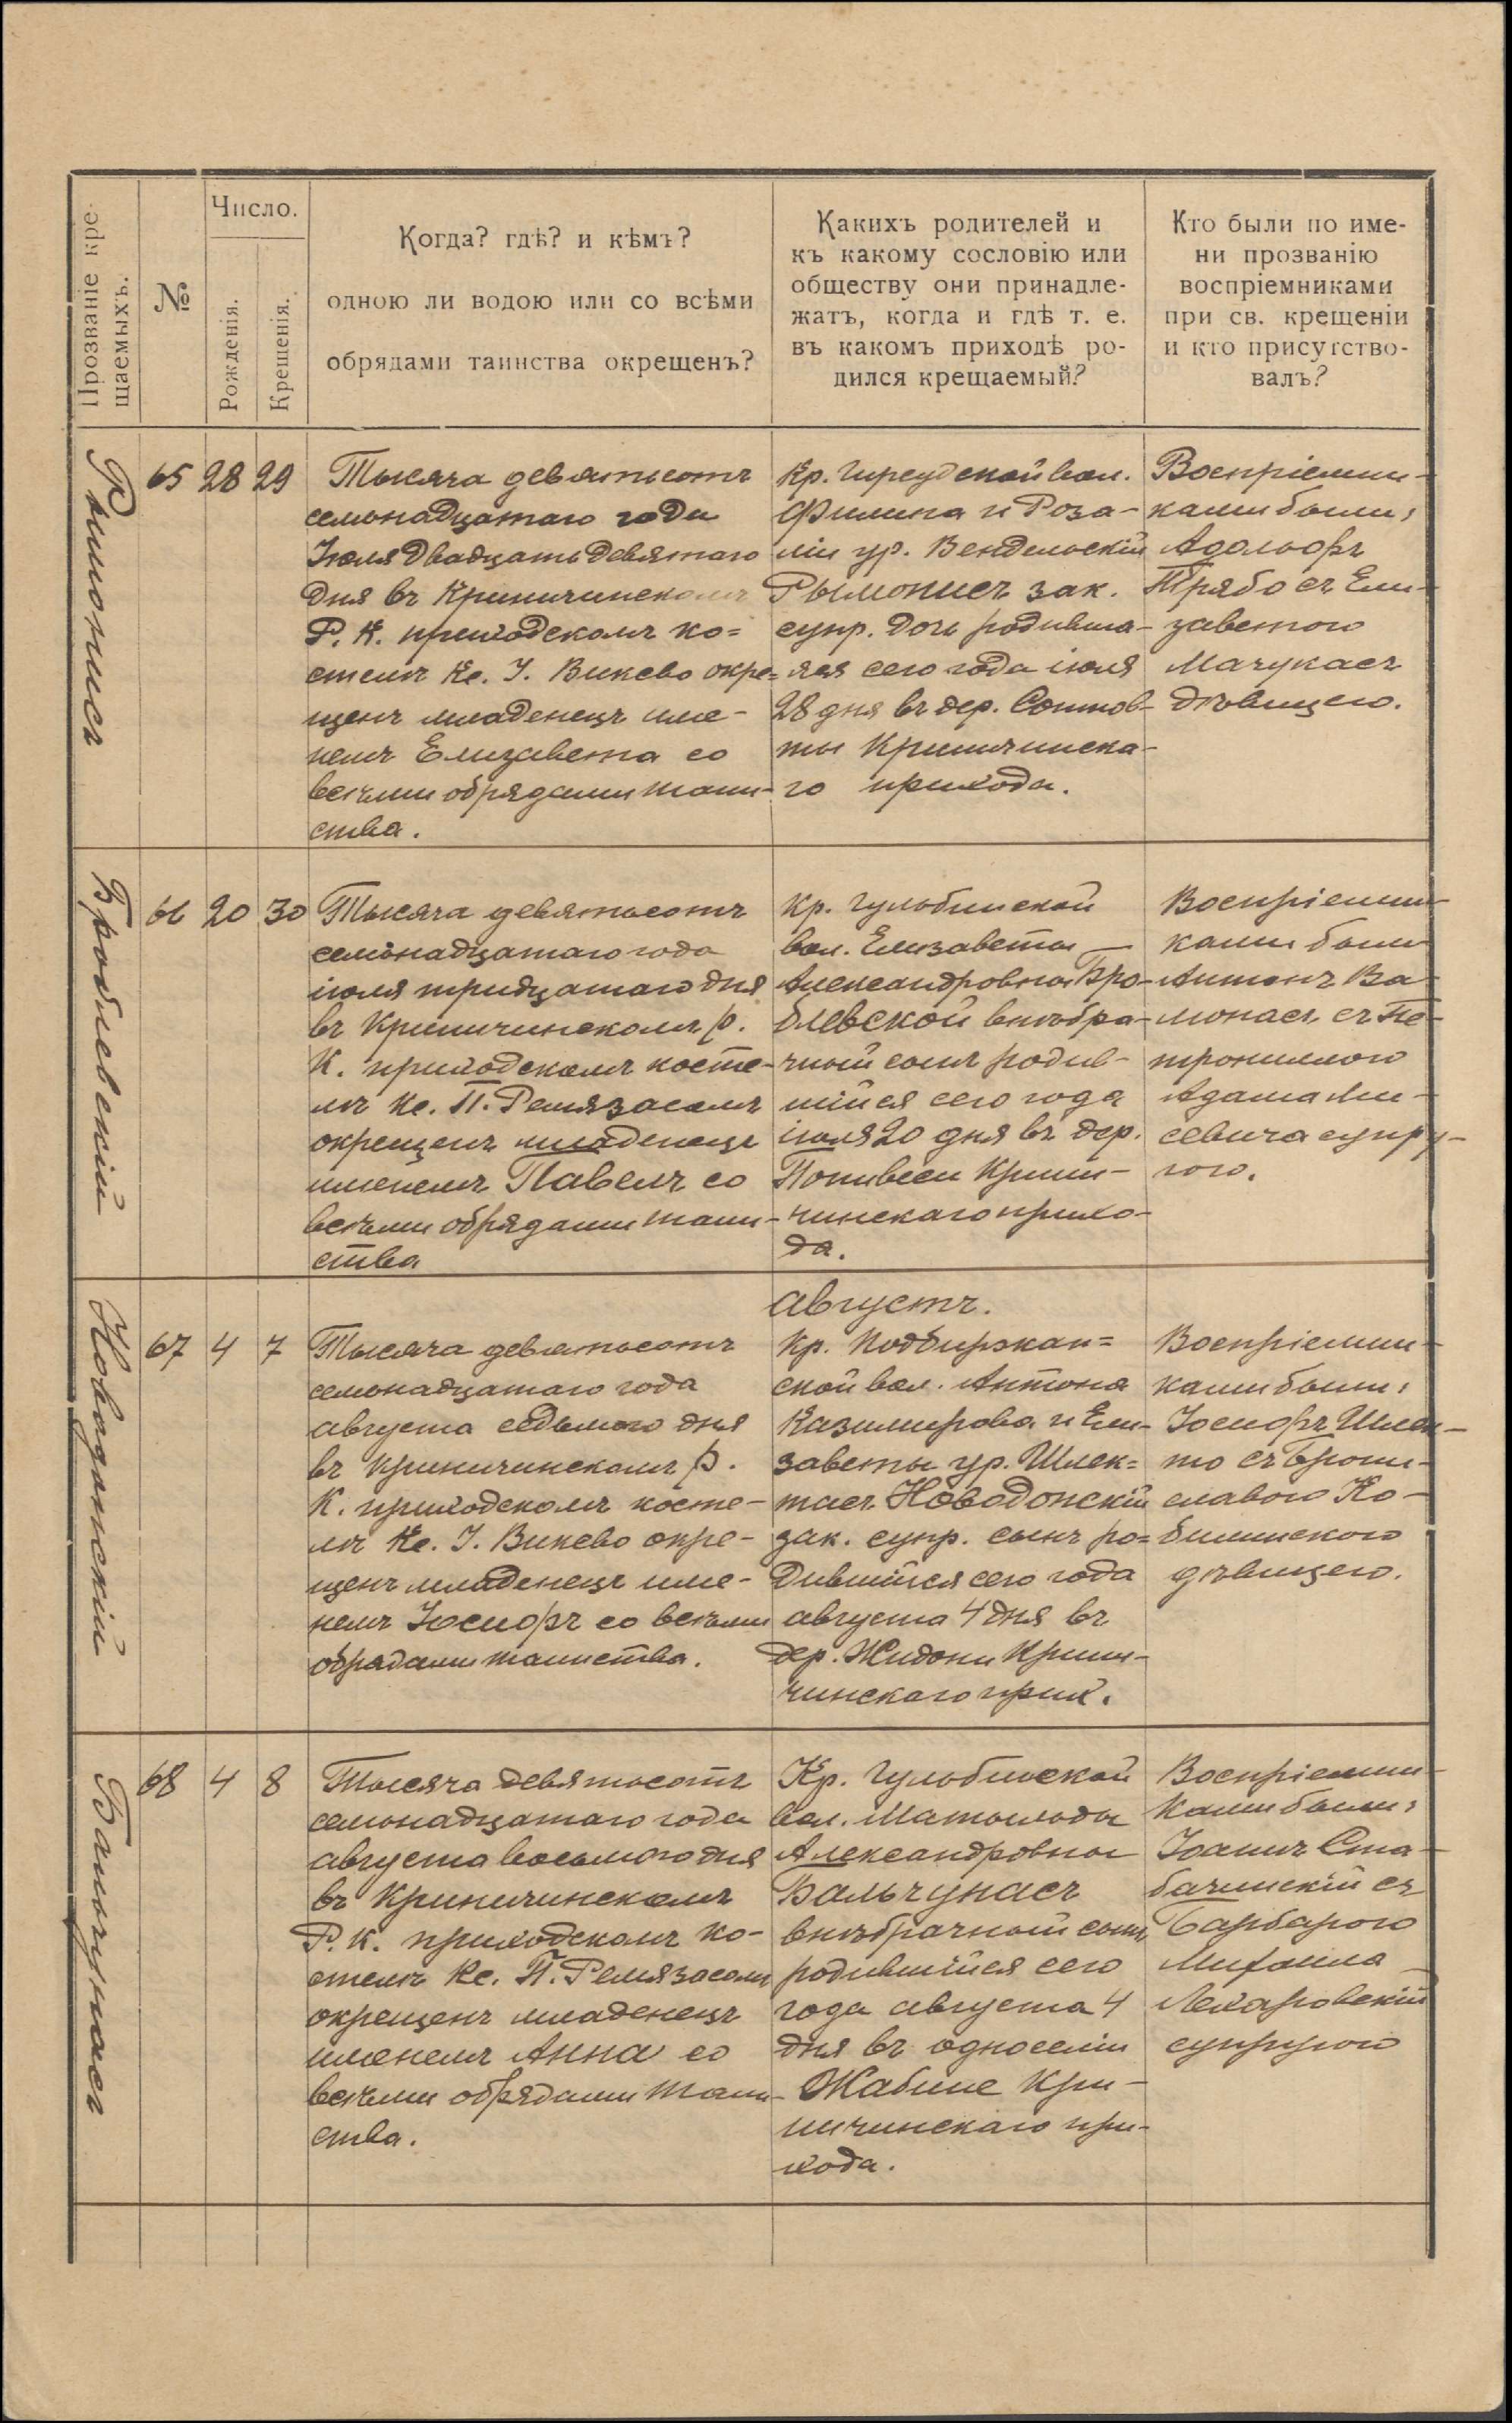 Прозваніе кре-
щаемыхъ.
№
Число.
Рожденія.
Крещенія.
Когда? гдѣ? и кѣмъ?
одною ли водою или со всѣми
обрядами таинства окрещенъ?
Какихъ родителей и
къ какому сословію или
обществу они принадле-
жатъ, когда и гдѣ т. е.
въ какомъ приходѣ ро-
дился крещаемый?
Кто были по име-
ни прозванію
воспріемниками
при св. крещеніи
и кто присутство-
валъ?
Рымонисъ
65 28 29
Тысяча девятьсотъ
семьнадцатаго года
Іюля двадцать девятаго
дня въ Криничинскомъ
Р. К. приходскомъ ко=
стелѣ Кс. І. Виксво окре=
щенъ младенецъ име-
немъ Елизавета со
всѣми обрядами таин-
ства.
Кр. вол.
Филипа и Роза-
ліи ур. Вендельскій
Рымонисъ зак.
супр. дочь родивша-
яся сего года іюля
28 дня въ дер.
ты Криничинска-
го прихода.
Воспріемни-
ками были:
Адольфъ
Трябо съ Ели-
заветою
Мачукасъ
дѣвицею.
Броблевскій
66 20 30
Тысяча девятьсотъ
семьнадцатаго года
іюля тридцатаго дня
въ Криничинскомъ р.
К. приходскомъ косте-
лѣ Кс. П. Ремязасомъ
окрещенъ младенецъ
именемъ Павелъ со
всѣми обрядами таин-
ства
Кр. Гульбинской
вол. Елизаветы
Александровны Бро-
блевской внѣбра-
чный сынъ родив-
шійся сего года
іюля 20 дня въ дер.
Крини-
чинскаго прихо-
да.
Воспріемни-
ками были
Антонъ Ва-
лонасъ съ Пе-
тронимою
Адама Ли-
севича супру-
гою.
Августъ.
Новодонскій
67 4 7
Тысяча девятьсотъ
семьнадцатаго года
августа седьмого дня
въ Криничинскомъ р.
К. приходскомъ косте-
лѣ Кс. І. Виксво окре-
щенъ младенецъ име-
немъ Іосифъ со всѣми
обрядами таинства.
Кр. Подбиржан=
ской вол. Антона
Казимирова и Ели-
заветы ур. Шлек=
тасъ Новодонскій
зак. супр. сынъ ро=
дившійся сего года
августа 4 дня въ
дер. Жидони Крини-
чинскаго прих.
Воспріемни-
ками были:
Іосифъ Шлек-
то съ Брони-
славою Ко-
билинскою
дѣвицею.
Бальчунасъ
68 4 8
Тысяча девятьсотъ
семьнадцатаго года
августа восьмого дня
въ Криничинскомъ
Р. К. приходскомъ ко-
стелѣ Кс. П. Ремязасомъ
окрещенъ младенецъ
именемъ Анна со
всѣми обрядами таин-
ства.
Кр. Гульбинской
вол. Матыльды
Александровны
Бальчунасъ
внѣбрачный сынъ
родившійся сего
года августа 4
дня въ односеліи
Жабине Кри-
ничинскаго при-
хода.
Воспріемни-
ками были:
Іоанъ Ста-
бачинскій съ
Барбарою
Михаила
Лехаровскій
супругою